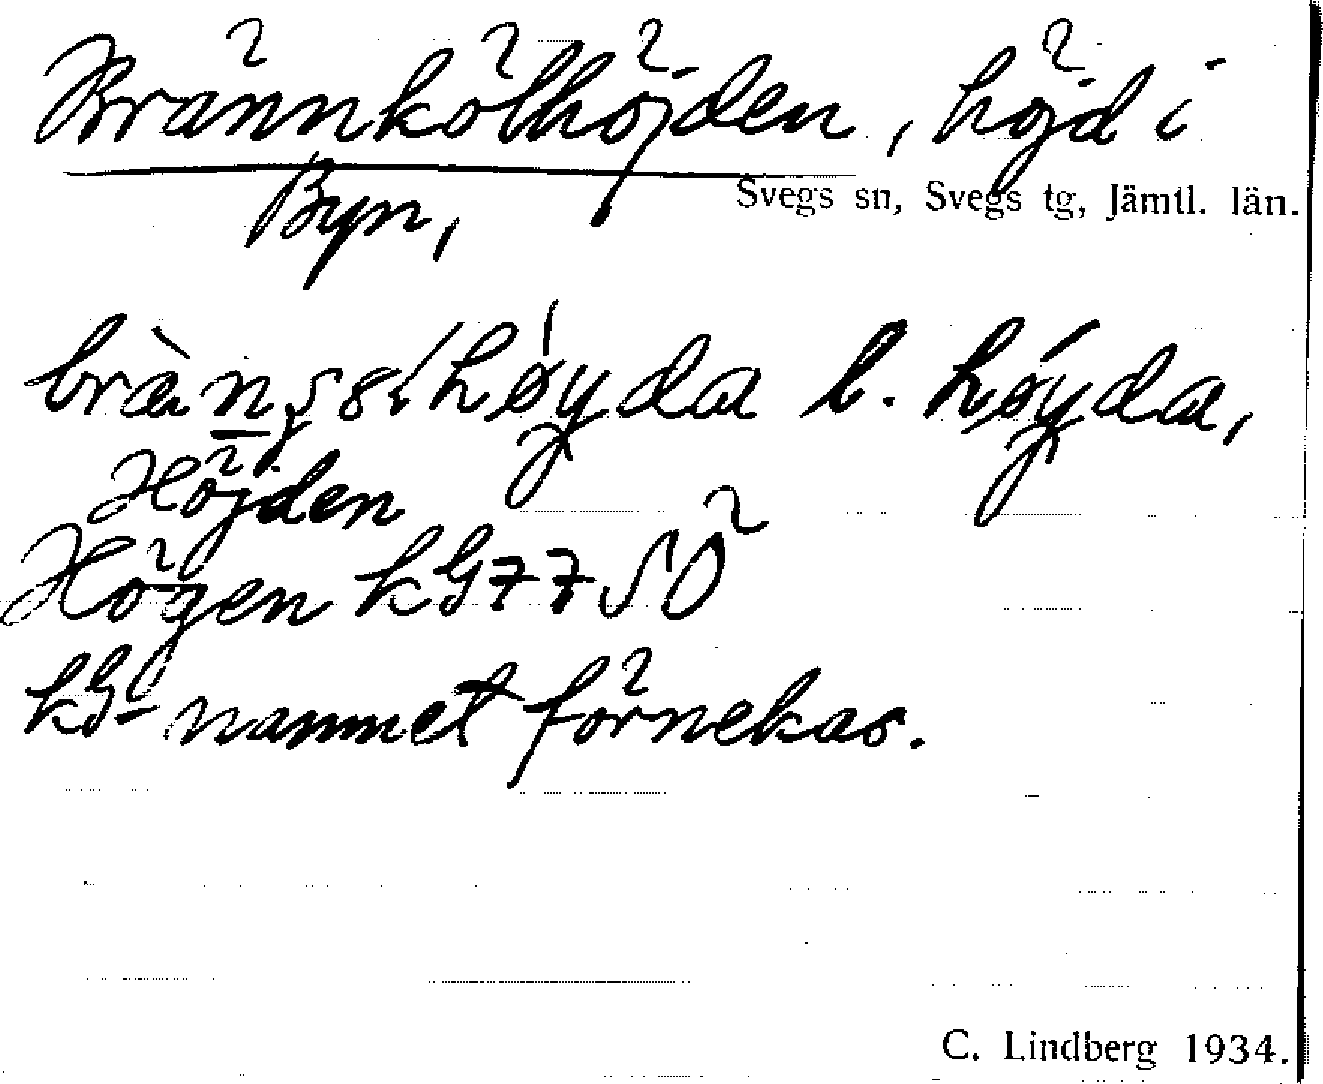 Brännkölhöjden, höjd i
Byn,
Svegs sn, Svegs tg, Jämtl. län.
l. høyda,
Höjden
Högen kG77SÖ
kG-namnet förnekas.
C. Lindberg 1934.